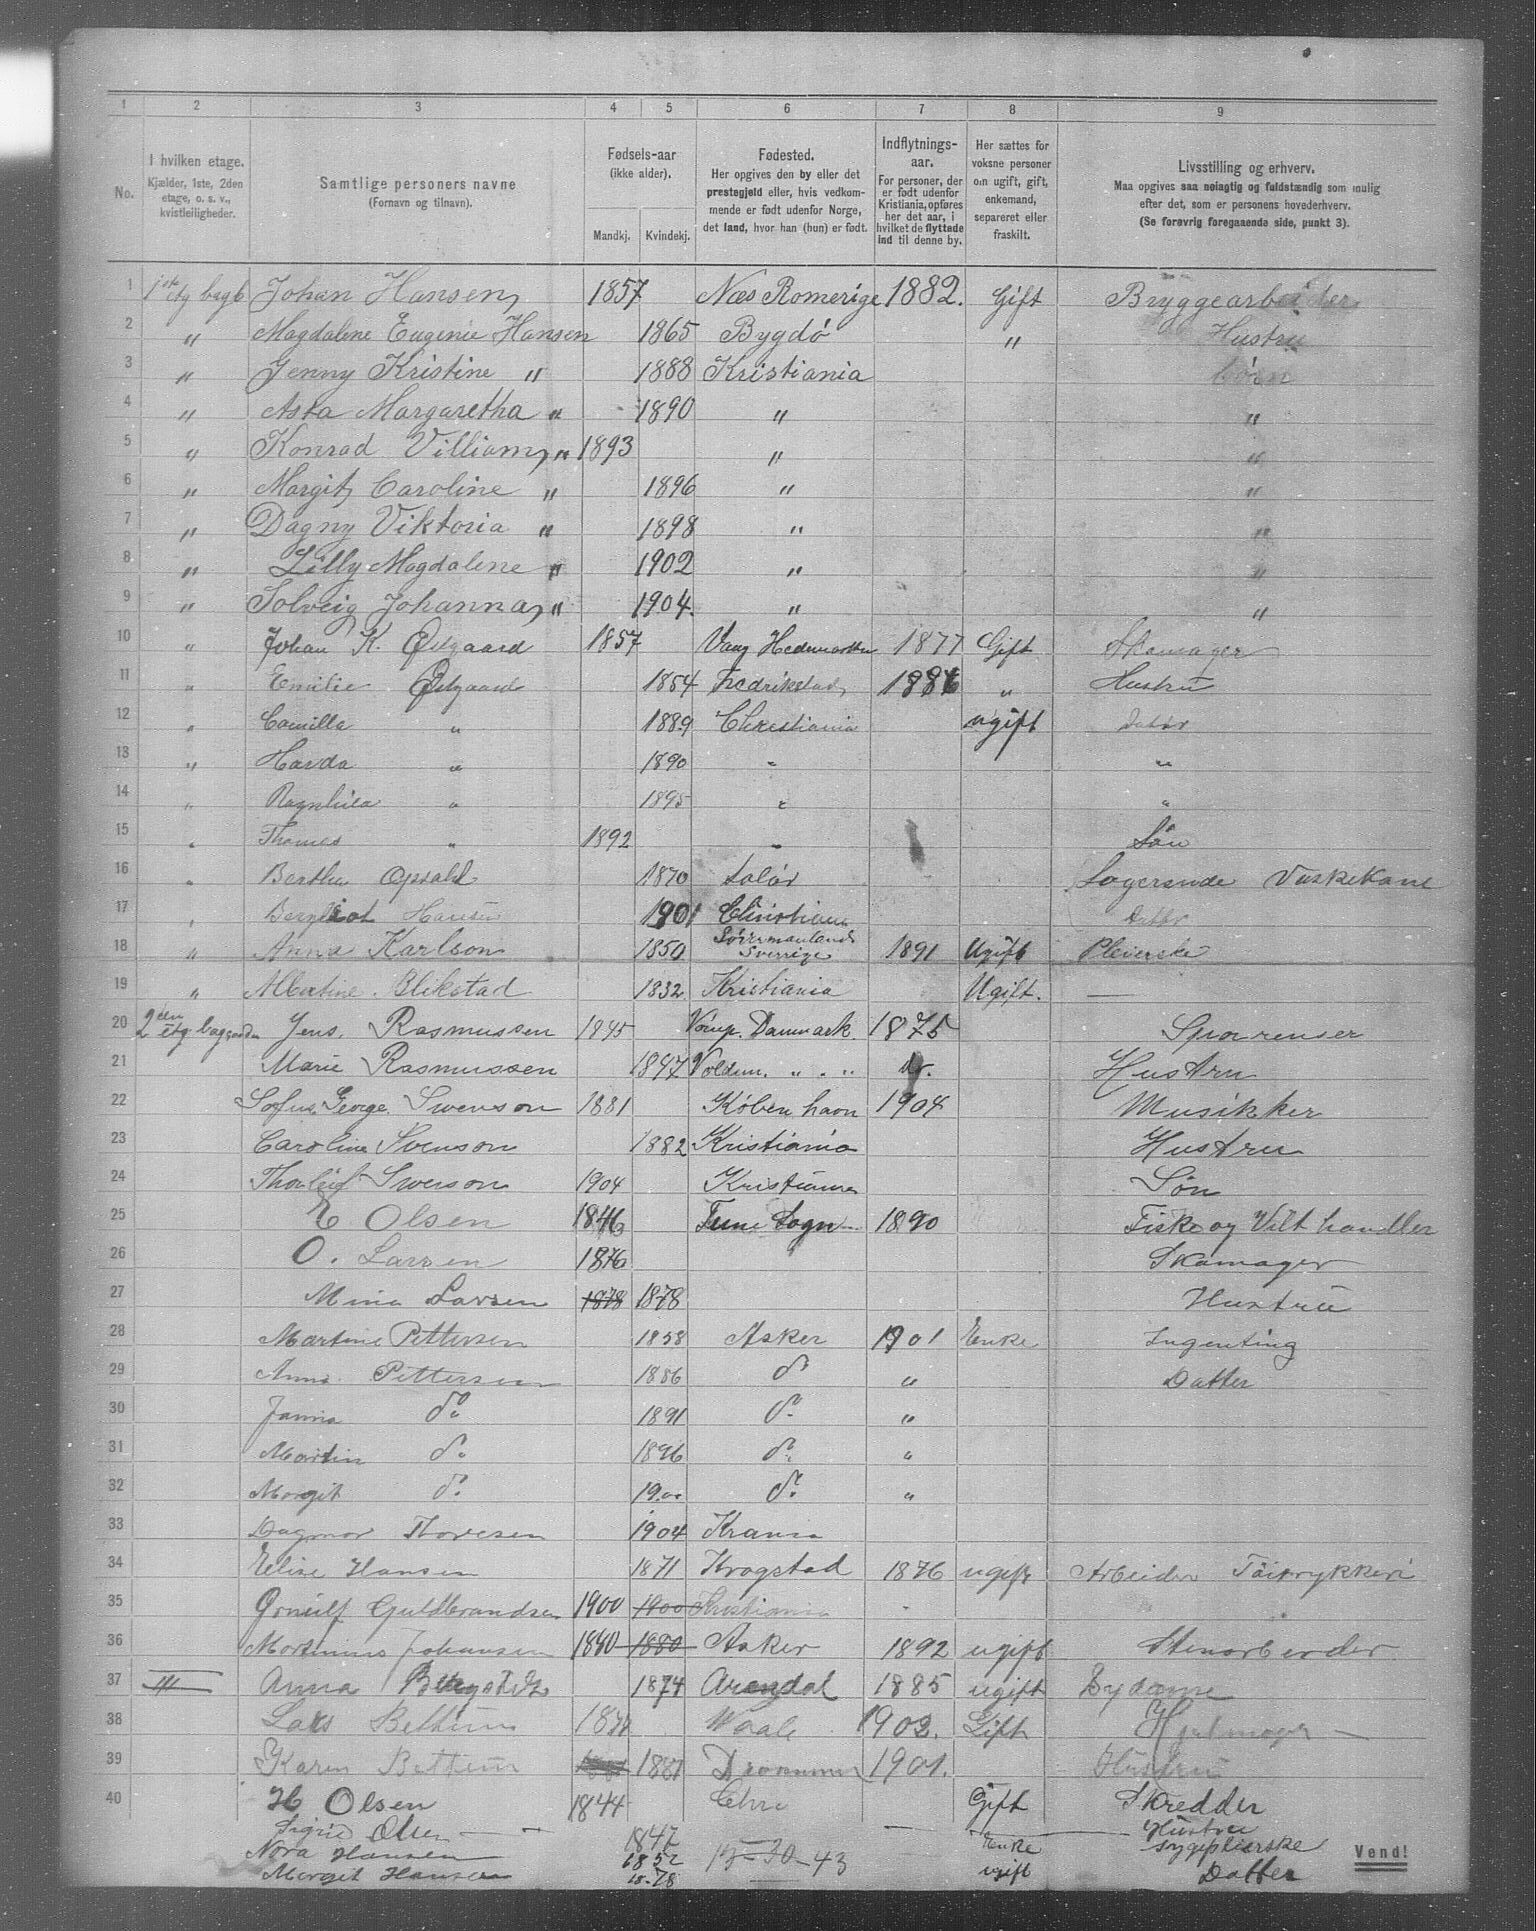 1 2 3 4 5 6 7 8 9
No. I hvilken etage. Kjælder, 1ste, 2den etage, o. s. v., kvistleiligheder. Samtlige personers navne (Fornavn og tilnavn). Fødsels-aar (ikke alder). Mandkj. Kvindekj. Fødested. Her opgives den by eller det prestegjeld eller, hvis vedkommende er født udenfor Norge, det land, hvor han (hun) er født. Indflytnings-aar. For personer, der er født udenfor Kristiania, opføres her det aar, i hvilket de flyttede ind til denne by. Her sættes for voksne personer om ugift, gift, enkemand, separeret eller fraskilt. Livsstilling og erhverv. Maa opgives saa nøiagtig og fuldstændig som mulig efter det, som er personens hovederhverv. (Se forøvrig foregaaende side, punkt 3).
1 1ste etg bagb Johan Hansen, 1857 Næs Romerige 1882. Gift Bryggearbeider
2 " Magdalene Eugenie Hansen 1865 Bygdö " Hustru
3 " Jenny Kristine " 1888 Kristiania Börn
4 " Asta Margaretha " 1890 " "
5 " Konrad Villiam, " 1893 " "
6 " Margit Caroline " 1896 " "
7 " Dagny Viktoria " 1898 " "
8 " Lilly Magdalene " 1902 " "
9 " Solveig Johanna, " 1904. " "
10 " Johan K. Østgaard 1857 Vang Hedemarken 1877 Gift Skomager
11 " Emilie Østgaard 1854 Fredrikstad 1886 " Hustru
12 " Camilla " 1889 Christiania ugift Datter
13 " Harda " 1890 " "
14 " Ragnhild " 1895 " "
15 " Thomas " 1892 " Sön
16 " Berthe Opsahl 1870 Solör Logerende Vaskekone
17 " Bergliot Hansen 1901 Christiania Datter
18 " Anna Karlson 1850 Sverrige 1891 Ugift Pleierske
19 " Albertine Blikstad 1832 Kristiania Ugift. —
20 2den etg baggaarden Jens Rasmussen 1845 Danmark. 1875 Sporrenser
21 Marie Rasmussen 1847 Voldum. " . " Do. Hustru
22 Sofus George Swenson 1881 Köbenhavn 1904 Musikker
23 Caroline Svenson 1882 Kristiania Hustru
24 Thorleif Swenson 1904 Kristiania Sön
25 E Olsen 1846 Tune Sogn 1890 Fiske og Vilt handler
26 O. Larsen 1876 Skomager
27 Mina Larsen 1878 1878 Hustru
28 Martine Pettersen 1858 Asker 1901 Enke Ingenting
29 Anna Pettersen 1886 do " Datter
30 Janna do. 1891 do. "
31 Martin do. 1896 do. "
32 Margit do. 1900 do. "
33 Dagmar Thoresen 1904 Krania
34 Elise Hansen 1871 Krogstad 1876 ugift Arbeider Töitrykkeri
35 Ørnulf Guldbrandsen 1900 1900 Kristiania
36 Mortinius Johansen 1880 1880 Asker 1892 ugift Stenarbeider
37 Anna 1874 Arendal 1885 ugift Sydame
38 Lars Bettum Vaale 1902. Gift Hjulmager
39 Karen Bettum 1881 Drammen 1901. Hustru
40 H Olsen 1844 Chra Gift Skredder
Sigrid Olsen 1847 — — Hustru
Nora Hansen 1852 13-30-43 Enke sygepleierske
Margit Hansen 1878 ugift Datter
Vend!